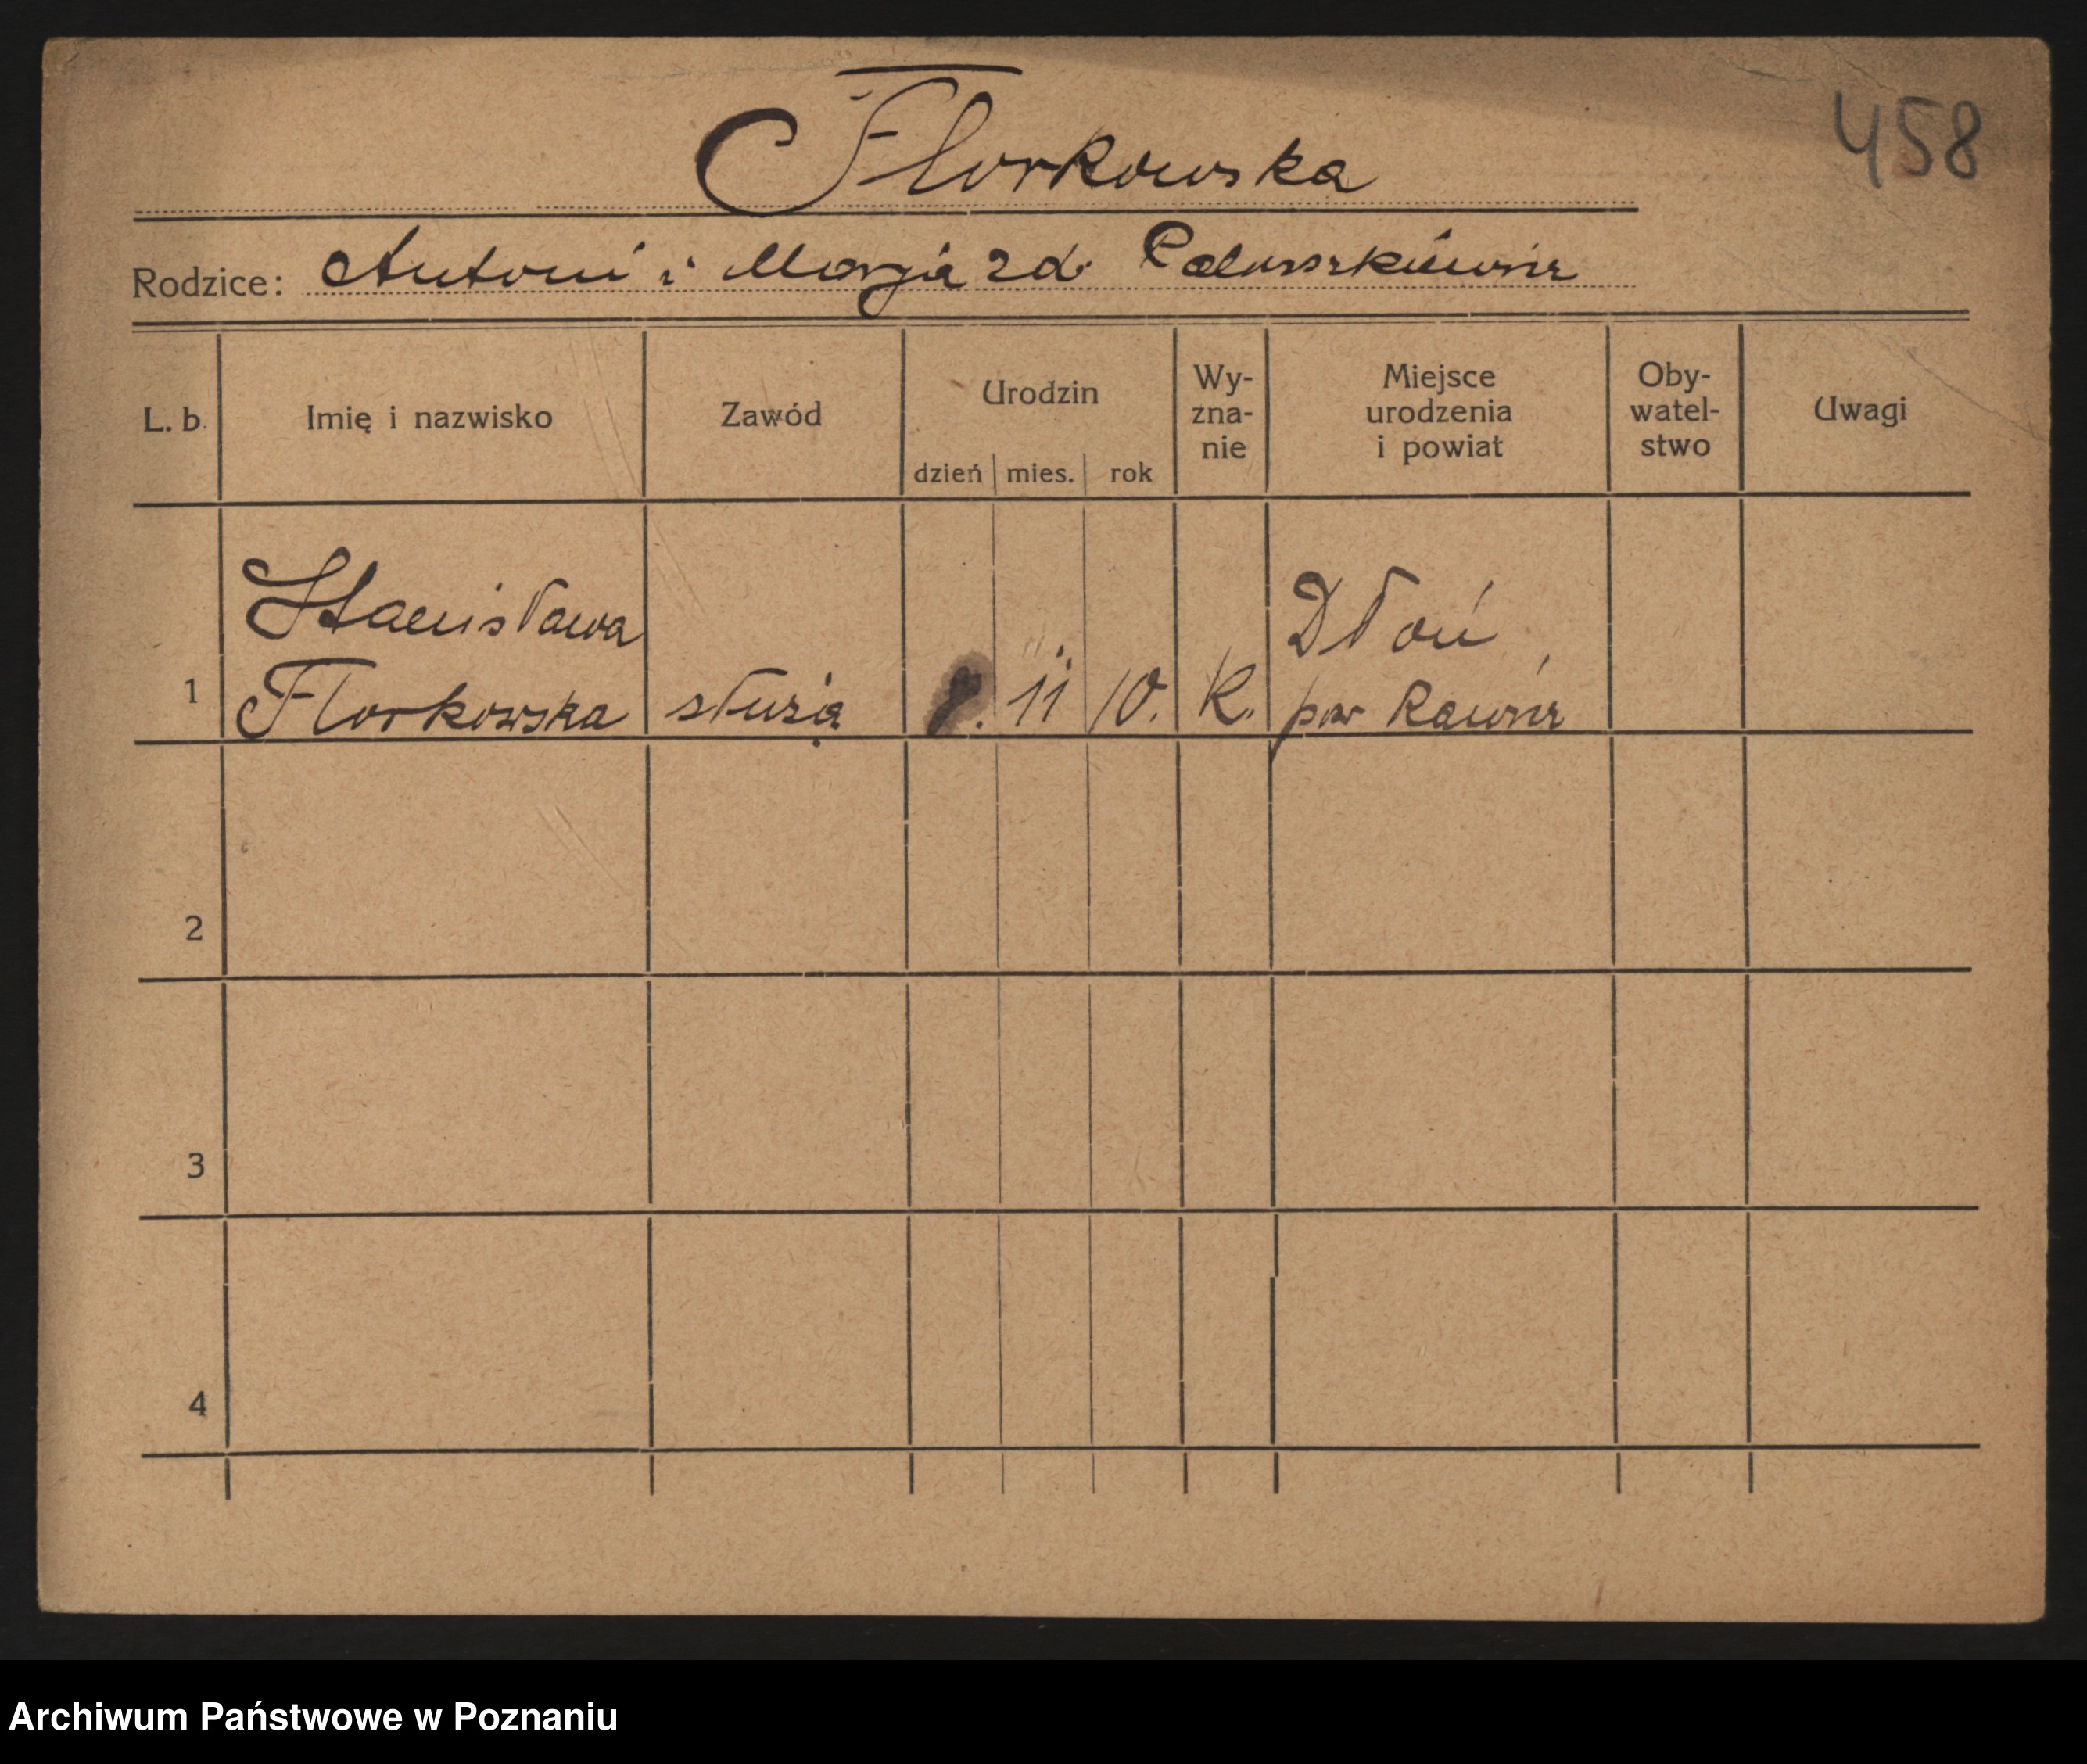 Florkowska
458
Rodzice: Antoni i Marja zd.
L. b. Imię i nazwisko Zawód Urodzin dzień mies. rok Wy- zna- nie Miejsce urodzenia i powiat Oby- watel- stwo Uwagi
Stanisława Dłoń,
1 Florkowska służą 8. 11 10. K. pow Rawicz
2
3
4
Archiwum Państwowe w Poznaniu